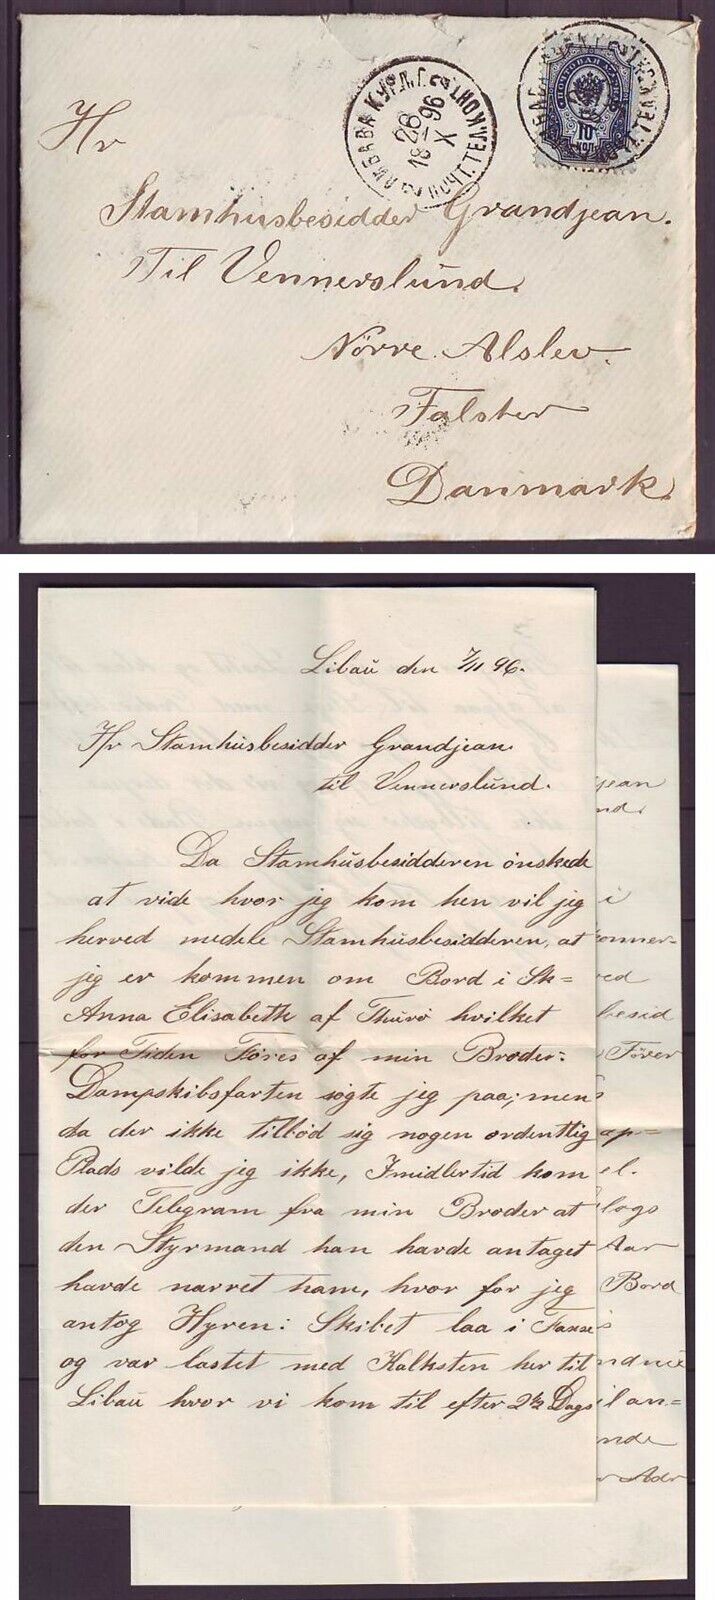 Hr
Stamhusbesidder Grandjean.
Til Vennerslund.
Nörre Alslev.
Falster
Danmark.
ЛИБАВА КУРЛ. Г.
26
X
1896
ПОЧТ. ТЕЛ. КОНТ
10
КОП
Libau den 7/11 96.
Hr Stamhusbesidder Grandjean
til Vennerslund.
Da Stamhusbesidderen önskede
at vide hvor jeg kom hen vil jeg
herved medele Stamhusbesidderen, at
jeg er kommen om Bord i Sk-
Anna Elisabeth af Thurö hvilket
for Tiden Föres af min Broder:
Dampskibsfarten sögte jeg paa; men
da der ikke tilböd sig nogen ordentlig
Plads vilde jeg ikke, Imidlertid kom
der Telegram fra min Broder at
den Styrmand han havde antaget
havde narret ham, hvor for jeg
antog Hyren: Skibet laa i Faxse
og var lastet med Kalksten her til
Libau hvor vi kom til efter 2½ Dags
jean
nd.
i
onner-
ved
besid
Förer
ap-
el.
logs
Aar
Bord
il an-
ende
r Adr